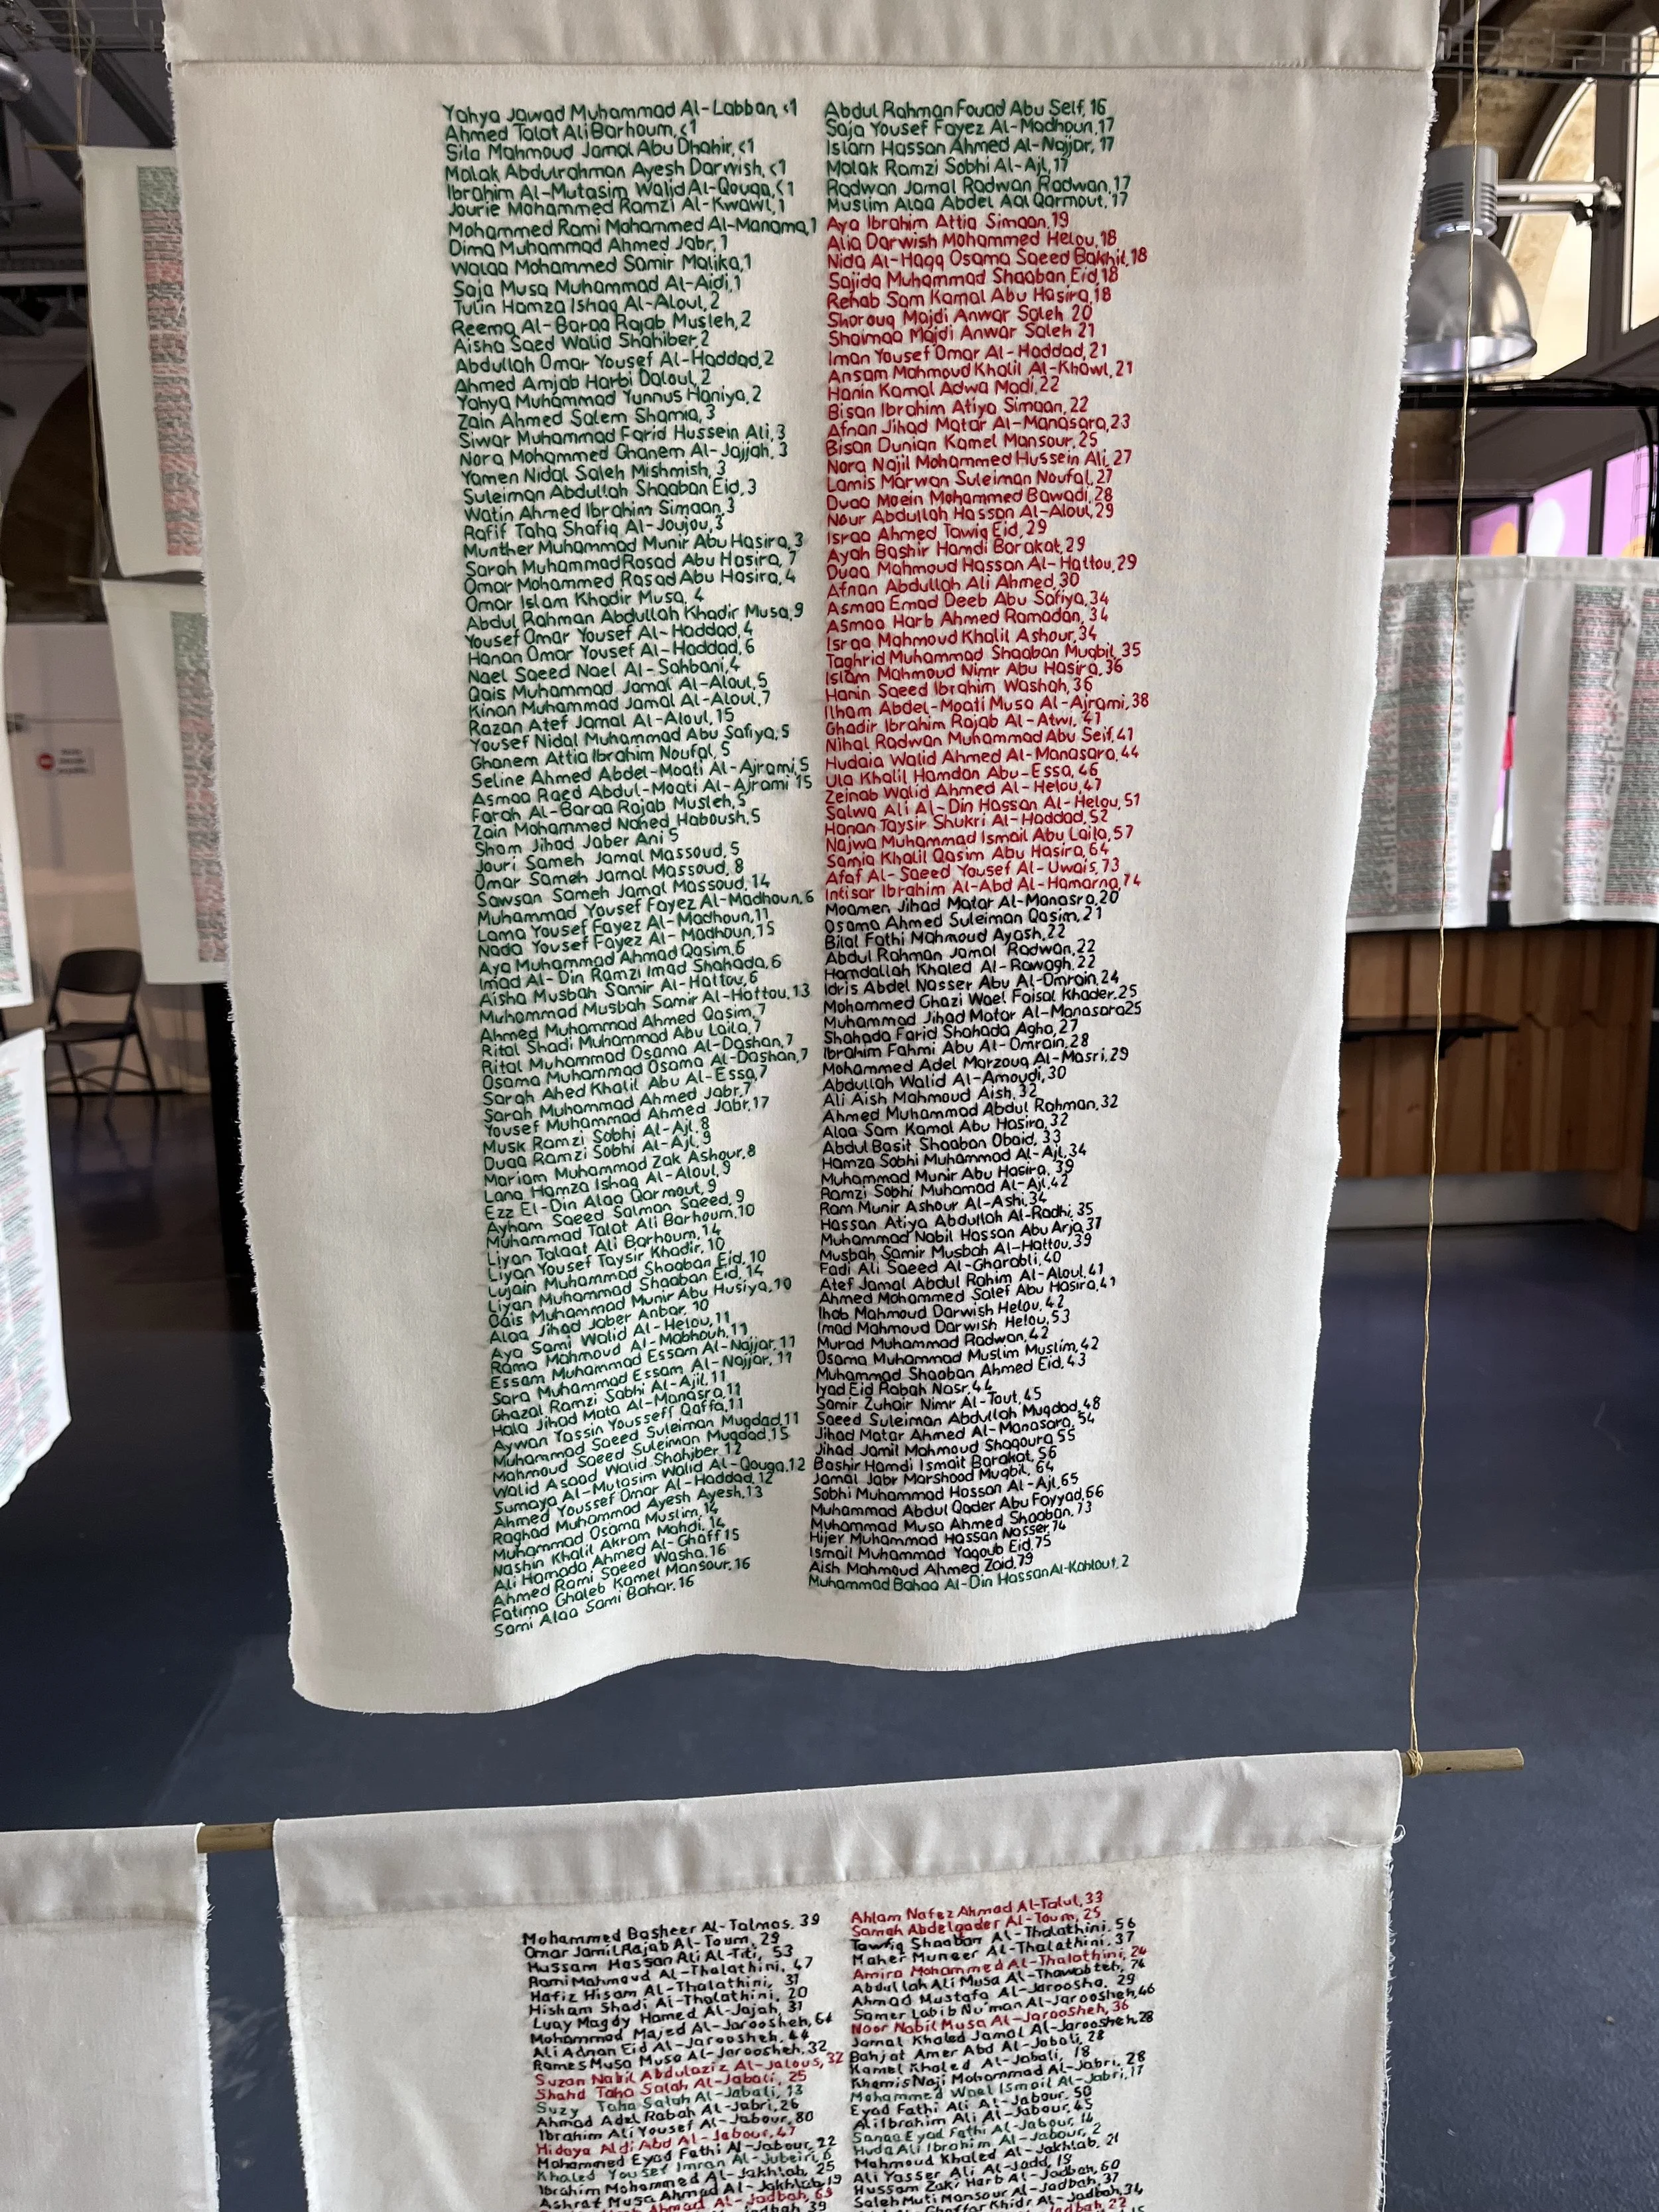 Yahya Jawad Muhammad Al-Labban, <1
Ahmed Talat Ali Barhoum, <1
Sila Mahmoud Jamal Abu Dhahir, <1
Malak Abdulrahman Ayesh Darwish, <1
Ibrahim Al-Mutasim Walid Al-Qouqa, <1
Jourie Mohammed Ramzi Al-Kwawl, 1
Mohammed Rami Mohammed Al-Manama, 1
Dima Muhammad Ahmed Jabr, 1
Walaa Mohammed Samir Malika, 1
Saja Musa Muhammad Al-Aidi, 1
Tulin Hamza Ishaq Al-Aloul, 2
Reema Al-Baraa Rajab Musleh, 2
Aisha Saed Walid Shahiber, 2
Abdullah Omar Yousef Al-Haddad, 2
Ahmed Amjab Harbi Daloul, 2
Yahya Muhammad Yunnus Haniya, 2
Zain Ahmed Salem Shamia, 3
Siwar Muhammad Farid Hussein Ali, 3
Nora Mohammed Ghanem Al-Jajjah, 3
Yamen Nidal Saleh Mishmish, 3
Suleiman Abdullah Shaaban Eid, 3
Watin Ahmed Ibrahim Simaan, 3
Rafif Taha Shafiq Al-Joujou, 3
Munther Muhammad Munir Abu Hasira, 3
Sarah Muhammad Rasad Abu Hasira, 7
Omar Mohammed Rasad Abu Hasira, 4
Omar Islam Khadir Musa, 4
Abdul Rahman Abdullah Khadir Musa, 9
Yousef Omar Yousef Al-Haddad, 4
Hanan Omar Yousef Al-Haddad, 6
Nael Saeed Nael Al-Sahbani, 4
Qais Muhammad Jamal Al-Aloul, 5
Kinan Muhammad Jamal Al-Aloul, 7
Razan Atef Jamal Al-Aloul, 15
Yousef Nidal Muhammad Abu Safiya, 5
Ghanem Attia Ibrahim Noufal, 5
Seline Ahmed Abdel-Moati Al-Ajrami, 5
Asmaa Raed Abdul-Moati Al-Ajrami 15
Farah Al-Baraa Rajab Musleh, 5
Zain Mohammed Nahed Haboush, 5
Sham Jihad Jaber Ani 5
Jouri Sameh Jamal Massoud, 5
Omar Sameh Jamal Massoud, 8
Sawsan Sameh Jamal Massoud, 14
Muhammad Yousef Fayez Al-Madhoun, 6
Lama Yousef Fayez Al-Madhoun, 11
Nada Yousef Fayez Al-Madhoun, 15
Aya Muhammad Ahmad Qasim, 6
Imad Al-Din Ramzi Imad Shahada, 6
Aisha Musbah Samir Al-Hattou, 6
Muhammad Musbah Samir Al-Hattou, 13
Ahmed Muhammad Ahmed Qasim, 7
Rital Shadi Muhammad Abu Laila, 7
Rital Muhammad Osama Al-Dashan, 7
Osama Muhammad Osama Al-Dashan, 7
Sarah Ahed Khalil Abu Al-Essa, 7
Sarah Muhammad Ahmed Jabr, 7
Yousef Muhammad Ahmed Jabr, 17
Musk Ramzi Sobhi Al-Ajl, 8
Duaa Ramzi Sobhi Al-Ajl, 9
Mariam Muhammad Zak Ashour, 8
Lana Hamza Ishaq Al-Aloul, 9
Ezz El-Din Alaa Qarmout, 9
Ayham Saeed Salman Saeed, 9
Muhammad Talat Ali Barhoum, 10
Liyan Talaat Ali Barhoum, 14
Liyan Yousef Taysir Khadir, 10
Lujain Muhammad Shaaban Eid, 10
Liyan Muhammad Shaaban Eid, 14
Qais Muhammad Munir Abu Husiya, 10
Alaa Jihad Jaber Anbar, 10
Aya Sami Walid Al-Helou, 11
Rama Mahmoud Al-Mabhouh, 11
Essam Muhammad Essam Al-Najjar, 11
Sara Muhammad Essam Al-Najjar, 11
Ghazal Ramzi Sabhi Al-Ajil, 11
Hala Jihad Mata Al-Manasra, 11
Aywan Yassin Yousseff Qaffa, 11
Muhammad Saeed Suleiman Mugdad, 11
Mahmoud Saeed Suleiman Mugdad, 15
Walid Asaad Walid Shahiber, 12
Sumaya Al-Mutasim Walid Al-Qouga, 12
Ahmed Youssef Omar Al-Haddad, 12
Raghad Muhammad Ayesh Ayesh, 13
Muhammad Osama Muslim, 14
Nashin Khalil Akram Mahdi, 14
Ali Hamada Ahmed Al-Ghaff 15
Ahmed Rami Saeed Washa, 16
Fatima Ghaleb Kamel Mansour, 16
Sami Alaa Sami Bahar, 16
Abdul Rahman Fouad Abu Self, 16
Saja Yousef Fayez Al-Madhoun, 17
Islam Hassan Ahmed Al-Najjar, 17
Malak Ramzi Sobhi Al-Ajl, 17
Radwan Jamal Radwan Radwan, 17
Muslim Alaa Abdel Aal Qarmout, 17
Aya Ibrahim Attia Simaan, 19
Alia Darwish Mohammed Helou, 18
Nida Al-Haqq Osama Saeed Bakhil, 18
Sajida Muhammad Shaaban Eid, 18
Rehab Sam Kamal Abu Hasira, 18
Shorouq Majdi Anwar Saleh 20
Shaimaa Majdi Anwar Saleh 21
Iman Yousef Omar Al-Haddad, 21
Ansam Mahmoud Khalil Al-Khawl, 21
Hanin Kamal Adwa Madi, 22
Bisan Ibrahim Atiya Simaan, 22
Afnan Jihad Matar Al-Manasara, 23
Bisan Dunian Kamel Mansour, 25
Nora Najil Mohammed Hussein Ali, 27
Lamis Marwan Suleiman Noufal, 27
Duaa Moein Mohammed Bawadi, 28
Nour Abdullah Hassan Al-Aloul, 29
Israa Ahmed Tawig Eid, 29
Ayah Bashir Hamdi Barakat, 29
Duaa Mahmoud Hassan Al-Hattou, 29
Afnan Abdullah Ali Ahmed, 30
Asmaa Emad Deeb Abu Safiya, 34
Asmaa Harb Ahmed Ramadan, 34
Israa Mahmoud Khalil Ashour, 34
Taghrid Muhammad Shaaban Muqbil, 35
Islam Mahmoud Nimr Abu Hasira, 36
Hanin Saeed Ibrahim Washah, 36
Ilham Abdel-Moati Musa Al-Ajrami, 38
Ghadir Ibrahim Rajab Al-Atwi, 41
Nihal Radwan Muhammad Abu Seif, 41
Hudaia Walid Ahmed Al-Manasara, 44
Ula Khalil Hamdan Abu-Essa, 46
Zeinab Walid Ahmed Al-Helou, 47
Salwa Ali Al-Din Hassan Al-Helou, 51
Hanan Taysir Shukri Al-Haddad, 52
Najwa Muhammad Ismail Abu Laila, 57
Samia Khalil Qasim Abu Hasira, 64
Afaf Al-Saeed Yousef Al-Uwais, 73
Intisar Ibrahim Al-Abd Al-Hamarna, 74
Moamen Jihad Matar Al-Manasra, 20
Osama Ahmed Suleiman Qasim, 21
Bilal Fathi Mahmoud Ayash, 22
Abdul Rahman Jamal Radwan, 22
Hamdallah Khaled Al-Rawagh, 22
Idris Abdel Nasser Abu Al-Omrain, 24
Mohammed Ghazi Wael Faisal Khader, 25
Muhammad Jihad Matar Al-Manasara 25
Shahada Farid Shahada Agha, 27
Ibrahim Fahmi Abu Al-Omrain, 28
Mohammed Adel Marzouq Al-Masri, 29
Abdullah Walid Al-Amoudi, 30
Ali Aish Mahmoud Aish, 32
Ahmed Muhammad Abdul Rahman, 32
Alaa Sam Kamal Abu Hasira, 32
Abdul Basit Shaaban Obaid, 33
Hamza Sobhi Muhammad Al-Ajl, 34
Muhammad Munir Abu Hasira, 39
Ramzi Sobhi Muhamad Al-Ajl, 42
Ram Munir Ashour Al-Ashi, 34
Hassan Atiya Abdullah Al-Radhi, 35
Muhammad Nabil Hassan Abu Arja, 37
Musbah Samir Musbah Al-Hattou, 39
Fadi Ali Saeed Al-Gharabli, 40
Atef Jamal Abdul Rahim Al-Aloul, 41
Ahmed Mohammed Salef Abu Hasira, 41
Ihab Mahmoud Darwish Helou, 42
Imad Mahmoud Darwish Helou, 53
Murad Muhammad Radwan, 42
Osama Muhammad Muslim Muslim, 42
Muhammad Shaaban Ahmed Eid, 43
Iyad Eid Rabah Nasr, 44
Samir Zuhair Nimr Al-Taut, 45
Saeed Suleiman Abdullah Mugdad, 48
Jihad Matar Ahmed Al-Manasara, 54
Jihad Jamil Mahmoud Shaqoura 55
Bashir Hamdi Ismait Barakat, 56
Jamal Jabr Marshood Muqbil, 64
Sobhi Muhammad Hassan Al-Ajl, 65
Muhammad Abdul Qader Abu Fayyad, 66
Muhammad Musa Ahmed Shaaban, 73
Hijer Muhammad Hassan Nasser, 74
Ismail Muhammad Yaqoub Eid, 75
Aish Mahmoud Ahmed Zaid, 79
Muhammad Bahaa Al-Din Hassan Al-Kahlout, 2
Mohammed Basheer Al-Talmas, 39
Omar Jamil Rajab Al-Toum, 29
Hussam Hassan Ali Al-Titi, 53
Rami Mahmoud Al-Thalathini, 47
Hafiz Hisam Al-Thalathini, 37
Hisham Shadi Al-Thalathini, 20
Luay Magdy Hamed Al-Jajah, 31
Mohammad Majed Al-Jaroosheh, 64
Ali Adnan Eid Al-Jaroosheh, 44
Rames Musa Musa Al-Jaroosheh, 32
Suzan Nabil Abdulaziz Al-Jalous, 32
Shahd Taha Salah Al-Jabali, 25
Suzy Taha Salah Al-Jabali, 13
Ahmad Adel Rabah Al-Jabri, 26
Ibrahim Ali Yousef Al-Jabour, 80
Hidaya Aldi Abd Al-Jabour, 47
Mohammed Eyad Fathi Al-Jabour, 22
Khaled Yousef Imran Al-Jubeiri, 6
Ibrahim Mohammed Al-Jakhlab, 25
Ashraf Musa Ahmad Al-Jakhlab, 19
Ahmad Al-Jadbah, 63
Ahlam Nafez Ahmad Al-Talul, 33
Samah Abdelqader Al-Toum, 25
Tawfiq Shaaban Al-Thalathini, 56
Maher Muneer Al-Thalathini, 37
Amira Mohammed Al-Thalathini, 24
Abdullah Ali Musa Al-Thawabteh, 74
Ahmad Mustafa Al-Jaroosha, 29
Samer Labib Nu'man Al-Jaroosheh, 46
Noor Nabil Musa Al-Jaroosheh, 36
Jamal Khaled Jamal Al-Jaroosheh, 28
Bahjat Amer Abd Al-Jabali, 28
Kamel Khaled Al-Jabali, 18
Khamis Naji Mohammad Al-Jabri, 28
Mohammed Wael Ismail Al-Jabri, 17
Eyad Fathi Ali Al-Jabour, 50
Ali Ibrahim Ali Al-Jabour, 45
Sanaa Eyad Fathi Al-Jabour, 14
Huda Ali Ibrahim Al-Jabour, 2
Mahmoud Khaled Al-Jakhlab, 21
Ali Yasser Ali Al-Jadd, 19
Hussam Zaki Harb Al-Jadbah, 60
Saleh Muti Mansour Al-Jadbah, 37
Ghaffar Khidr Al-Jadbah, 34